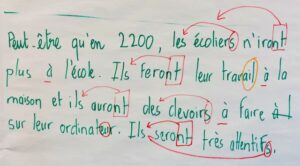 Peut-être qu'en 2200, les écoliers n'iront
plus à l'école. Ils feront leur travail à la
maison et ils auront des devoirs à faire
sur leur ordinateur. Ils seront très attentifs.